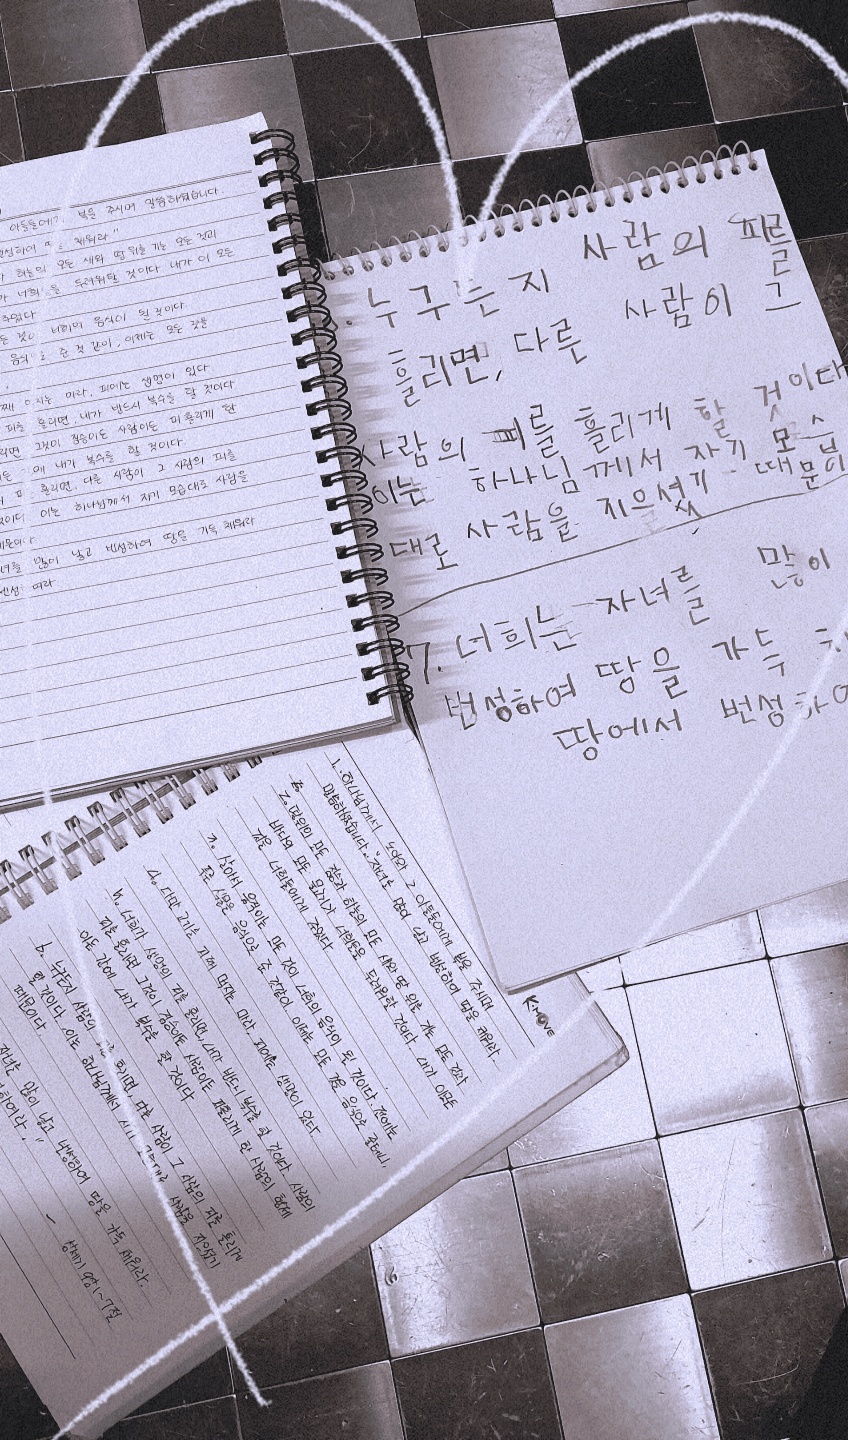 아들들에게 복을 주시며 말씀하셨습니다.
번성하여 땅을 채워라"
하늘의 모든 새와 땅 위를 기는 모든 것과
너희를 두려워할 것이다 내가 이 모든
주었다
모든 것이 너희의 음식이 될 것이다.
음식으로 준 것 같이, 이제는 모든 것을
마라. 피에는 생명이 있다
피를 흘리면, 내가 반드시 복수를 할 것이다
그것이 짐승이든 사람이든 피 흘리게 한
내가 복수를 할 것이다.
흘리면, 다른 사람이 그 사람의 피를
것이다 이는 하나님께서 자기 모습대로 사람을
때문이다
많이 낳고 번성하여 땅을 가득 채워라
여라
누구든지 사람의 피를
흘리면, 다른 사람이 그
사람의 피를 흘리게 할 것이다
이는 하나님께서 자기 모습
대로 사람을 지으셨기 때문이
7. 너희는 자녀를 많이
번성하여 땅을 가득
땅에서 번성하여
1. 하나님께서 노아와 그 아들들에게 복을 주시며
말씀하셨습니다. "자녀를 많이 낳고 번성하여 땅을 채워라.
2. 땅위의 모든 짐승과 하늘의 모든 새와 땅 위를 기는 모든 것과
바다의 모든 물고기가 너희들을 두려워할 것이다 내가 이 모든
것을 너희들에게 주었다
3. 살아서 움직이는 모든 것이 너희의 음식이 될 것이다. 전에는
푸른 식물을 음식으로 준 것같이, 이제는 모든 것을 음식으로 줄테니,
4. 다만 고기를 피째 먹지는 마라 피에는 생명이 있다
5. 너희가 생명의 피를 흘리면, 내가 반드시 복수를 할 것이다 사람의
피를 흘리면 그것이 짐승이든 사람이든 피흘리게 한 사람의 형제
이든 간에 내가 복수를 할 것이다
6. 누구든지 사람의 피를 흘리면, 다른 사람이 그 사람의 피를 흘리게
할 것이다. 이는 하나님께서 자기 모습대로 사람을 지으셨기
때문이다
자녀를 많이 낳고 번성하여 땅을 가득 채워라.
- 창세기 9장 1~7절
K·MOVE